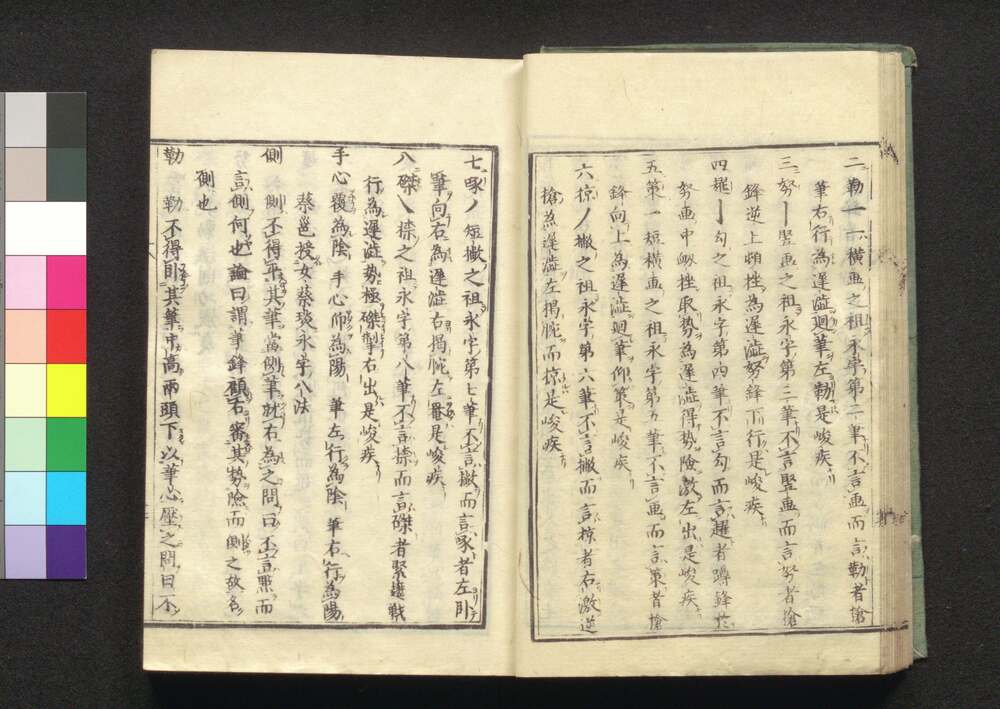 二勒一一横画之祖永字第二筆不言画而言勒者搶
筆右行為遅澁廻筆左勒是峻疾
三努丨竪画之祖永字第三筆不言竪画而言努者搶
鋒逆上頓挫為遅澁努鋒下行是峻疾
四趯亅勾之祖永字第四筆不言勾而言趯者蹲鋒於
努画中衂挫取勢為遅澁得勢險激左出是峻疾
五第一短横画之祖永字第五筆不言画而言策者搶
鋒向上為遅澁廻筆仰策是峻疾
六掠ノ撇之祖永字第六筆不言撇而言掠者右激逆
搶為遅澁左揭腕而掠是峻疾
七啄ノ短撇之祖永字第七筆不言撇而言啄者左則
筆向右為遅澁右揭腕左罨是峻疾
八磔乀捺之祖永字第八筆不言捺而言磔者緊趯戰
行為遅澁勢極磔掣右出是峻疾
手心覆為陰手心仰為陽筆左行為陰筆右行為陽
蔡邕授女蔡琰永字八法
側側不得平其筆當側筆就右為之問曰不言點而
言側何也論曰謂筆鋒顧右審其勢險而側之故名
側也
勒勒不得臥其筆中高兩頭下以筆心壓之問曰不